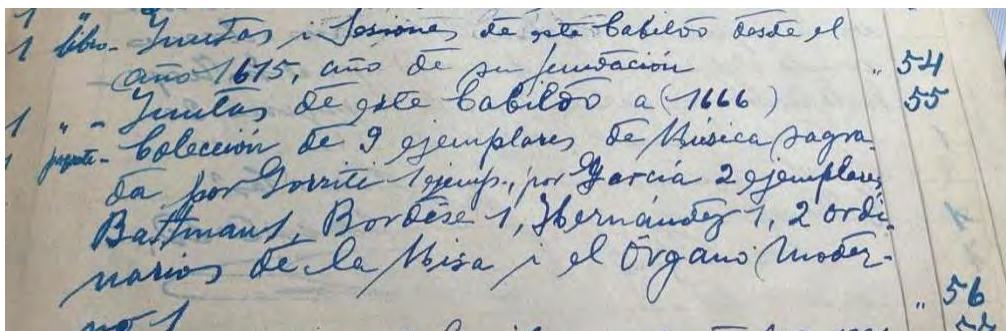 1 libro - Juntas i Sesiones de este Cabildo desde el
año 1615, año de su fundación " 54
1 " - Juntas de este Cabildo a (1666) 55
1 paquete - Colección de 9 ejemplares de Música sagra-
da por Gorriti 1 ejemp., por García 2 ejemplares,
Battmann 1, Bordèse 1, Hernández 1, 2 ordi-
narios de la Misa i el Órgano Moder-
no 1 " 56